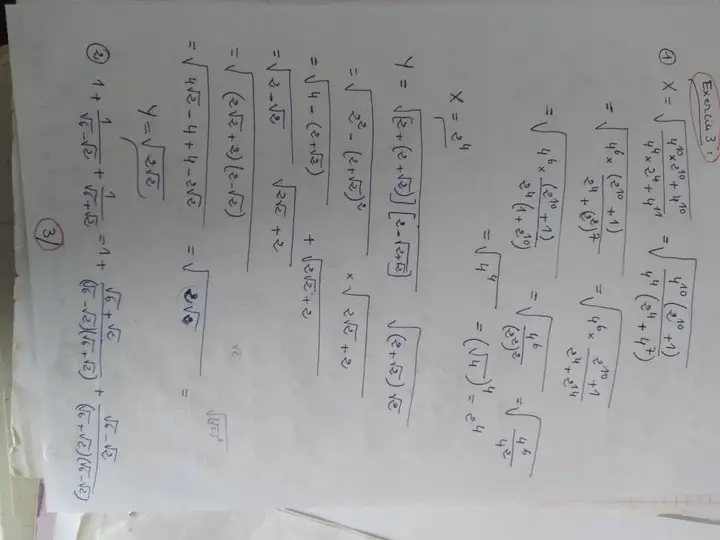 Exercice 3 :
① X = √((4^10 × 2^10 + 4^10)/(4^4 × 2^4 + 4^11)) = √((4^10 (2^10 + 1))/(4^4 (2^4 + 4^7)))
= √(4^6 × (2^10 + 1)/(2^4 + (2^2)^7)) = √(4^6 × (2^10 + 1)/(2^4 + 2^14))
= √(4^6 × (2^10 + 1)/(2^4 (1 + 2^10))) = √(4^6/(2^2)^2) = √(4^6/4^2)
= √4^4 = (√4)^4 = 2^4
X = 2^4
Y = √([2 + (2+√2)] [2 - √(2+√2)]) √((2+√2) √2)
= √(2^2 - (2+√2)^2) × √(2√2 + 2)
= √(4 - (2+√2)) + √(2√2 + 2)
= √(2 - √2) √(2√2 + 2)
= √((2√2 + 2)(2 - √2))
= √(4√2 - 4 + 4 - 2√2) = √(2√2) =
Y = √(2√2)
② 1 + 1/(√6 - √2) + 1/(√6 + √2) = 1 + (√6 + √2)/((√6 - √2)(√6 + √2)) + (√6 - √2)/((√6 + √2)(√6 - √2))
3/